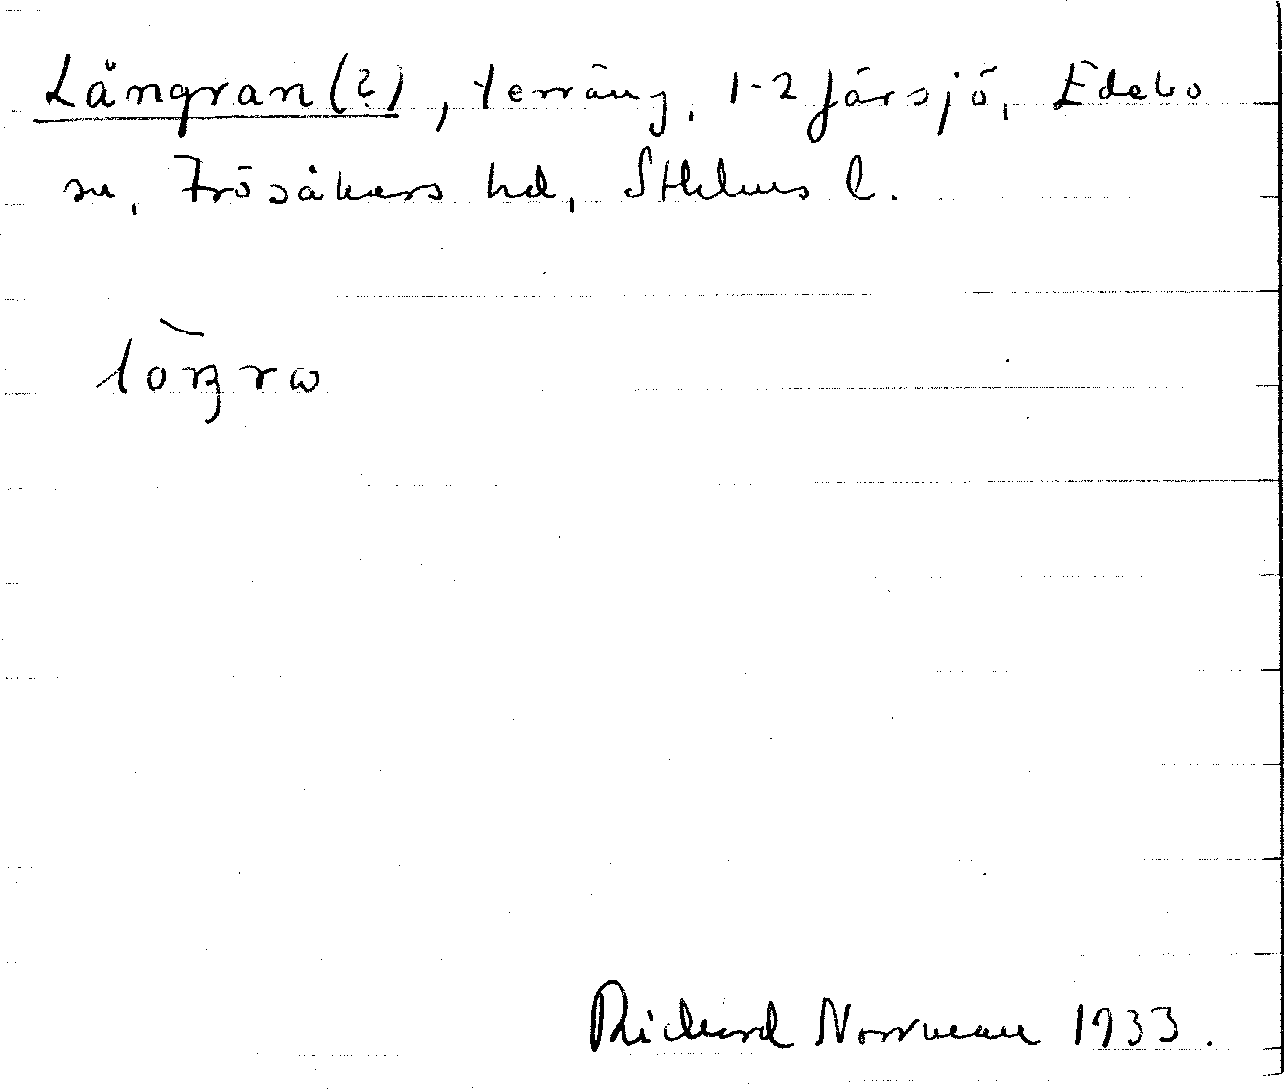 Långran (?), terräng, 1-2 Färsjö, Edebo
sn, Frösåkers hd, Sthlms l.
lòŋra
Richard Norrman 1933.